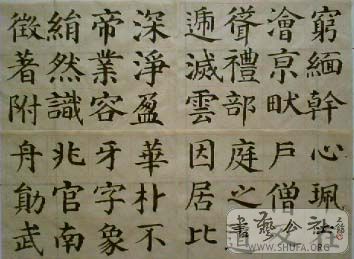 窮緬幹心珮
澮亰畎戶僧
聳禮部庭之
遞滅雲因居比
深淨盈華朴不
帝業容牙字象
綃然識兆官南
徵著附舟勛武
書藝公社
WWW.SHUFA.ORG